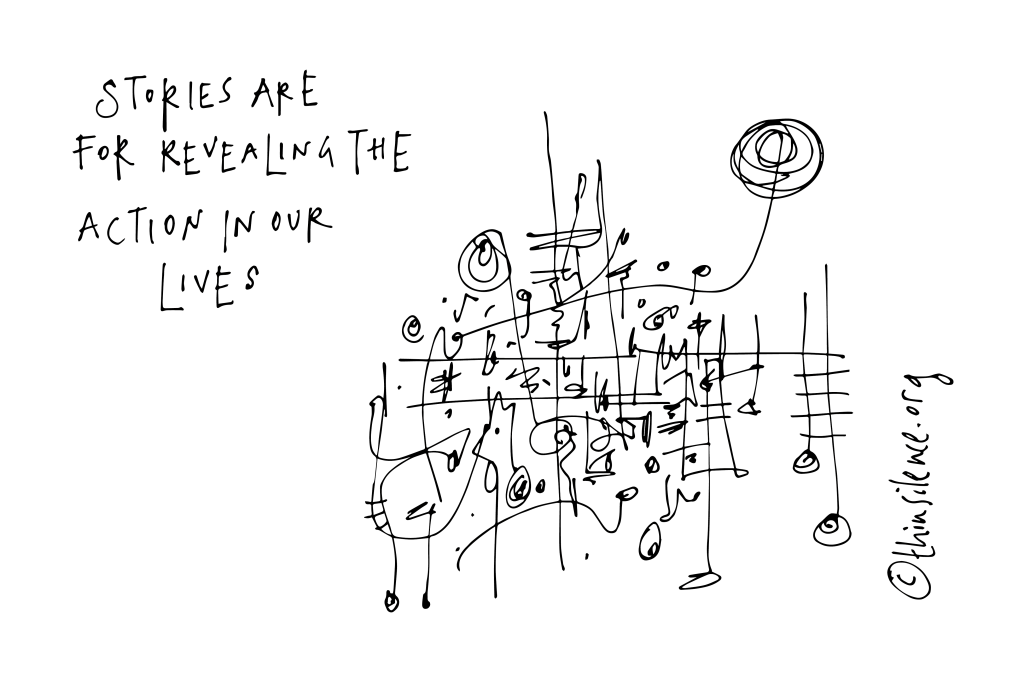 STORIES ARE
FOR REVEALING THE
ACTION IN OUR
LIVES
©thinsilence.org